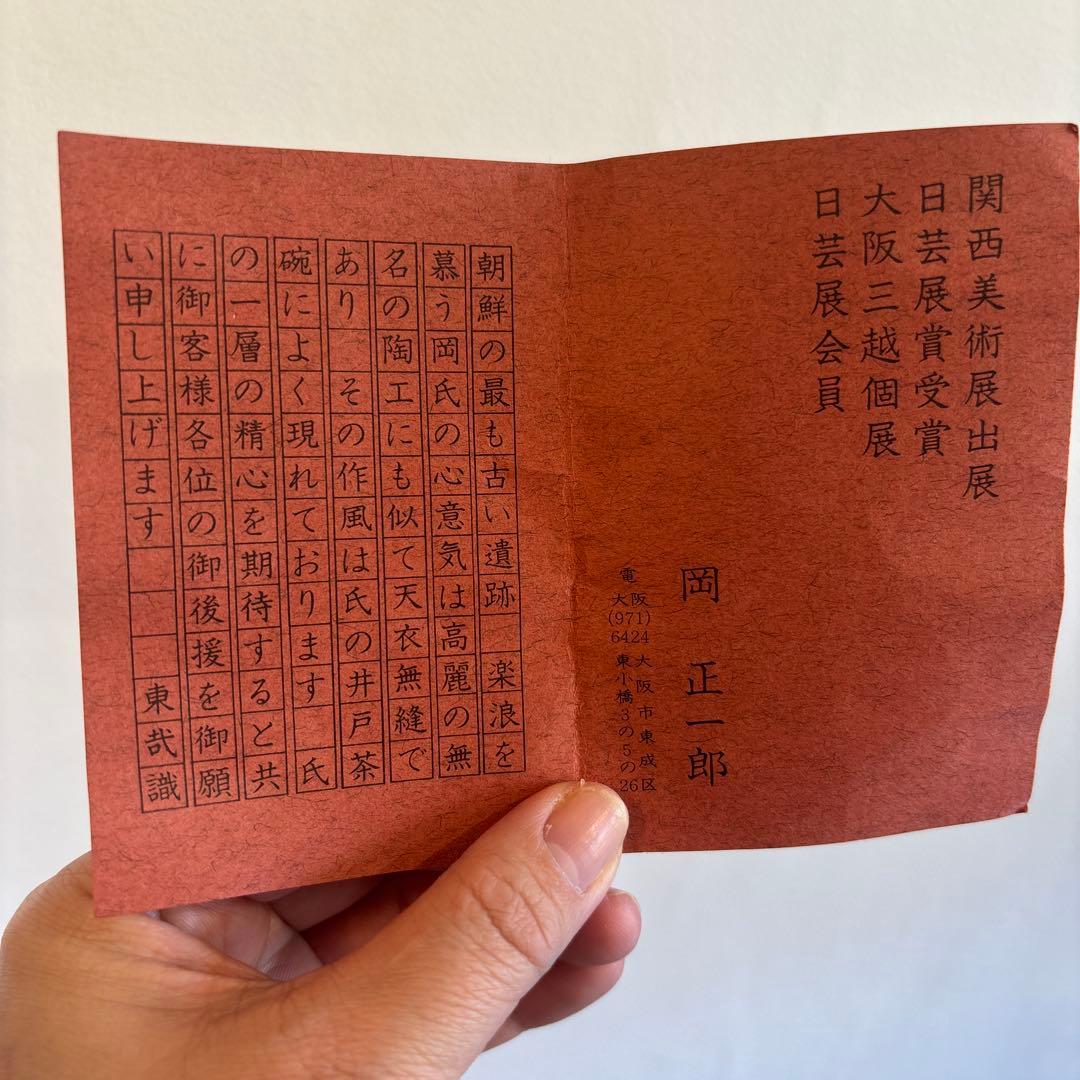 関西美術展出展
日芸展賞受賞
大阪三越個展
日芸展会員
岡 正一郎
大阪市東成区
東小橋3の5の26
電 大阪(971)6424
朝鮮の最も古い遺跡 楽浪を
慕う岡氏の心意気は高麗の無
名の陶工にも似て天衣無縫で
あり その作風は氏の井戸茶
碗によく現れております 氏
の一層の精心を期待すると共
に御客様各位の御後援を御願
い申し上げます 東哉識